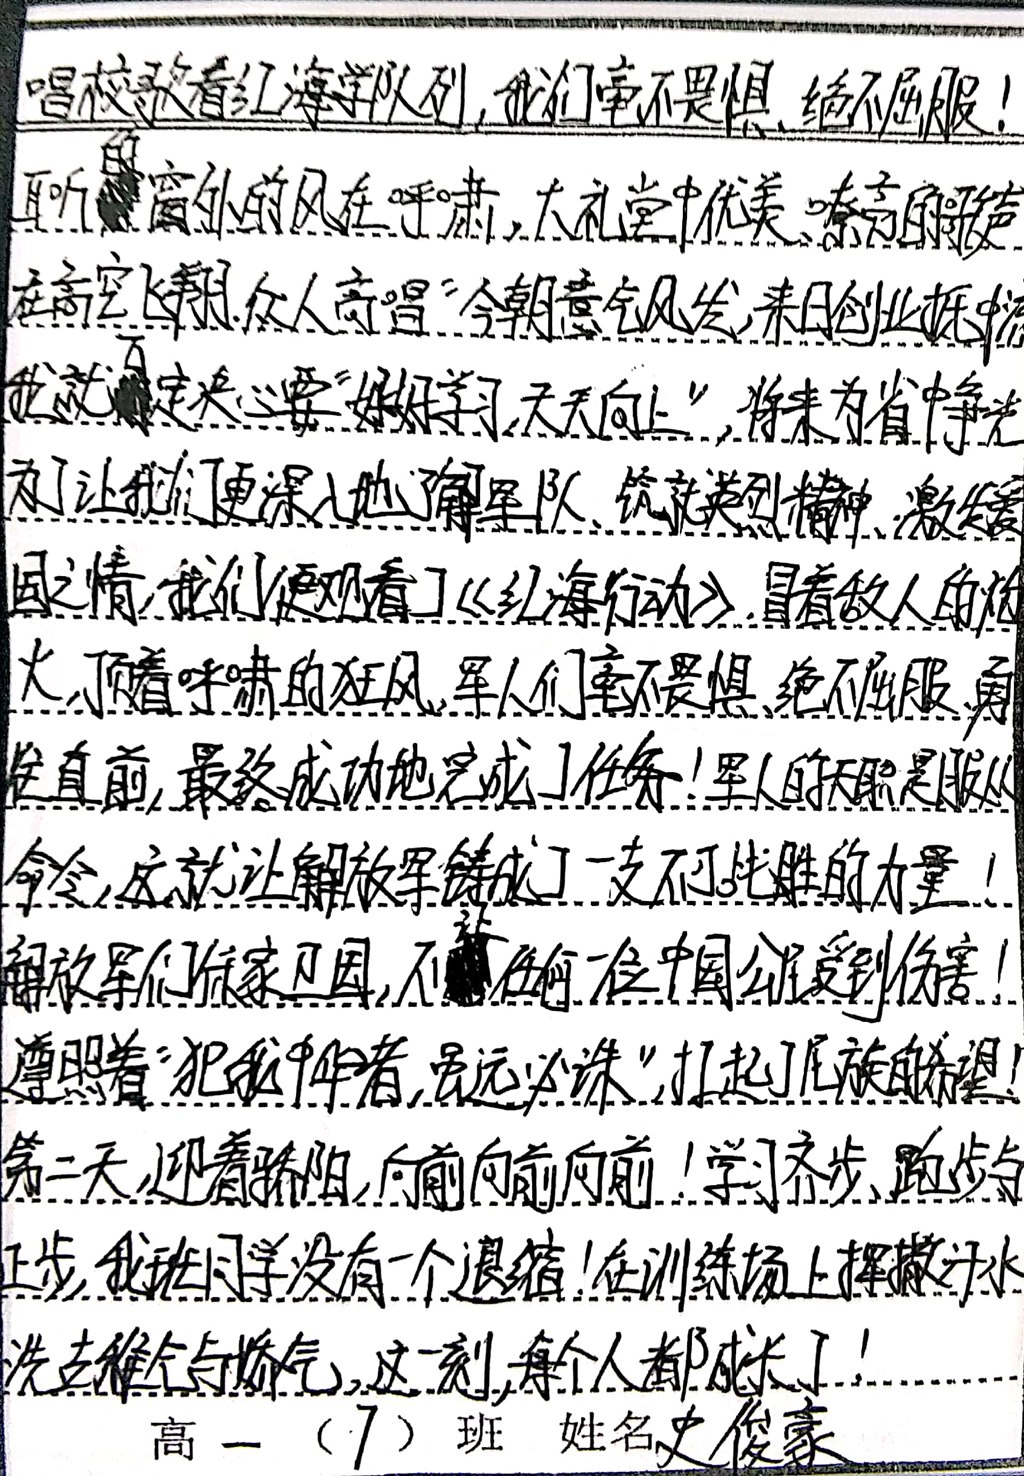 唱校歌看红海学队列,我们毫不畏惧、绝不屈服!
耳听的窗外的风在呼啸,大礼堂中优美、嘹亮的歌声
在高空飞翔.众人高唱“今朝意气风发,来日创业抵中流
我就下定决心要“好好学习,天天向上”,将来为省中争光
为了让我们更深入地了解军队、筑就英烈精神、激发爱
国之情,我们便观看了《红海行动》.冒着敌人的炮
火,顶着呼啸的狂风,军人们毫不畏惧、绝不屈服、勇
往直前,最终成功地完成了任务!军人的天职是服从
命令,这就让解放军铸成了一支不可战胜的力量!
解放军们保家卫国,不让任何一位中国公民受到伤害!
遵照着“犯我中华者,虽远必诛”,扛起了民族的希望!
第二天,迎着骄阳,向前向前向前!学习齐步、跑步与
正步,我班同学没有一个退缩!在训练场上挥撒汗水
洗去稚气与娇气,这一刻,每个人都成长了!
高一(7)班 姓名史俊豪